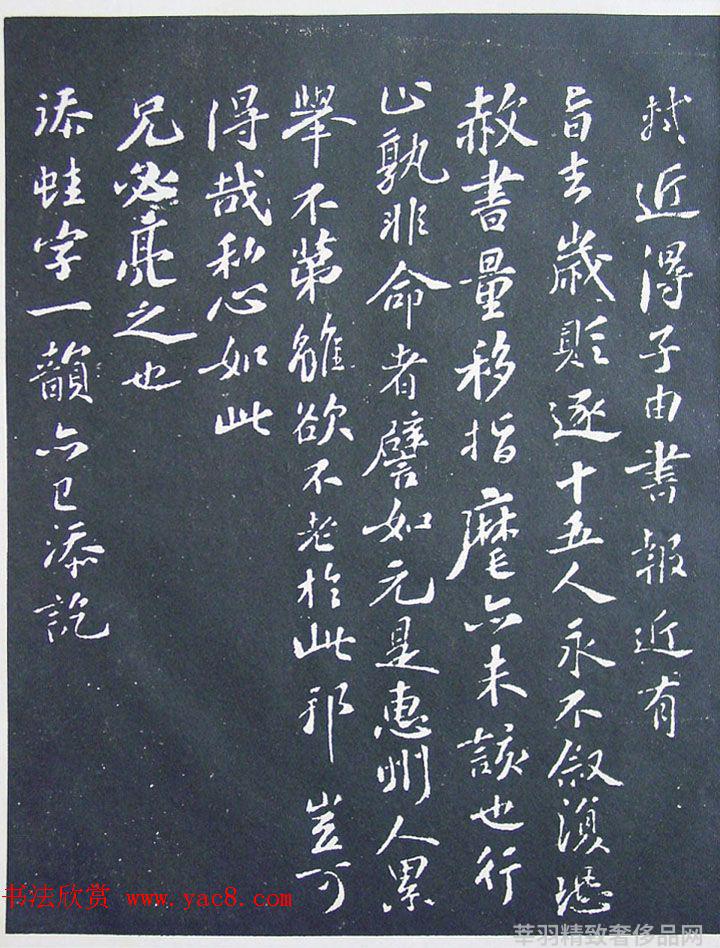 軾近得子由書報近有
旨去歲貶逐十五人永不敘湏恐
赦書量移指麾亦未該也行
止孰非命者譬如元是惠州人累
舉不第雖欲不老於此邪豈可
得哉私心如此
兄必亮之也
添蛙字一韻亦已添訖
书法欣赏 www.yac8.com
莘羽精致奢侈品网